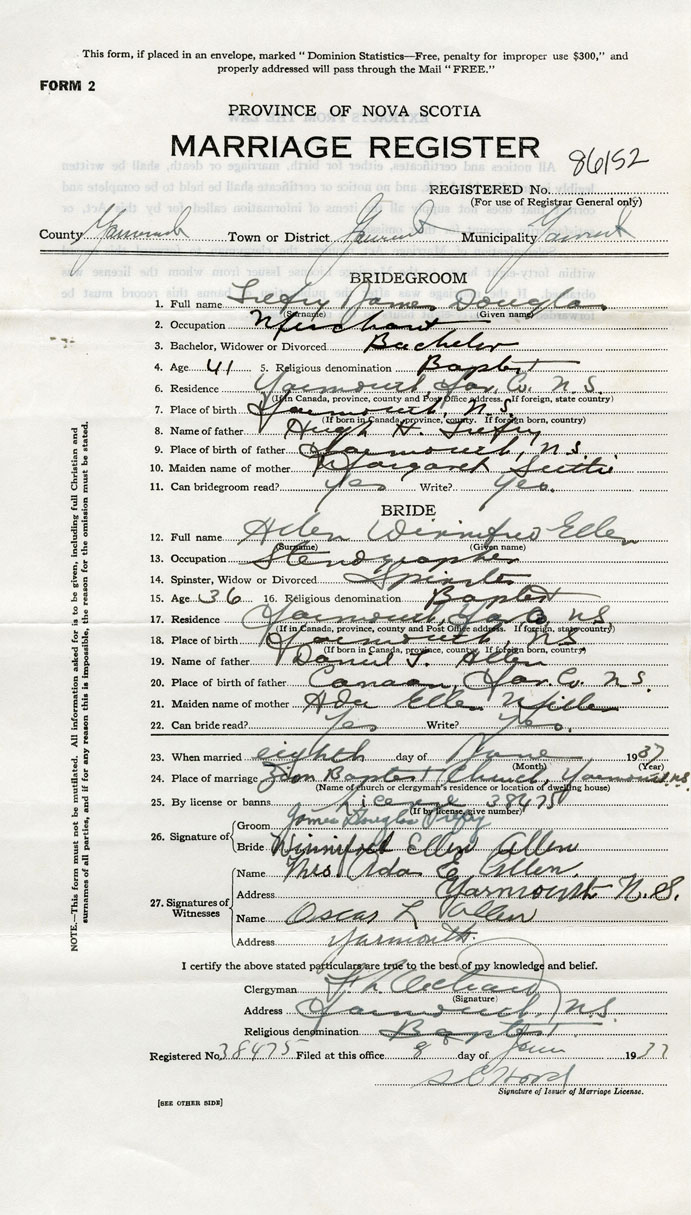 This form, if placed in an envelope, marked " Dominion Statistics—Free, penalty for improper use $300," and
properly addressed will pass through the Mail " FREE."
FORM 2
PROVINCE OF NOVA SCOTIA
MARRIAGE REGISTER
86152
REGISTERED No.
(For use of Registrar General only)
County Yarmouth Town or District Yarmouth Municipality Yarmouth
BRIDEGROOM
1. Full name Trefry James Douglas
(Surname) (Given name)
2. Occupation Merchant
3. Bachelor, Widower or Divorced Bachelor
4. Age 41 5. Religious denomination Baptist
6. Residence Yarmouth, Yar. Co. N.S.
(If in Canada, province, county and Post Office address. If foreign, state country)
7. Place of birth Yarmouth, N.S.
(If born in Canada, province, county. If foreign born, country)
8. Name of father Hugh H. Trefry
9. Place of father Yarmouth, N.S.
10. Maiden name of mother Margaret
11. Can bridegroom read? Yes Write? Yes.
BRIDE
12. Full name Allen Winnifred Ellen
(Surname) (Given name)
13. Occupation Stenographer
14. Spinster, Widow or Divorced Spinster
15. Age 36 16. Religious denomination Baptist
17. Residence Yarmouth, Yar. Co. N.S.
(If in Canada, province, county and Post Office address. If foreign, state country)
18. Place of birth Yarmouth, N.S.
(If born in Canada, province, county. If foreign born, country)
19. Name of father Daniel J. Allen
20. Place of birth of father Canaan, Yar. Co. N.S.
21. Maiden name of mother Ada Ellen
22. Can bride read? Yes Write? Yes.
23. When married eighth day of June 1937
(Month) (Year)
24. Place of marriage Zion Baptist Church, Yarmouth, N.S.
(Name of church or clergyman's residence or location of dwelling house)
25. By license or banns License 38475
(If by license, give number)
26. Signature of
Groom James Douglas Trefry
Bride Winnifred Ellen Allen
27. Signatures of Witnesses
Name Mrs Ada E. Allen.
Address Yarmouth N.S.
Name Oscar L Allen
Address Yarmouth.
I certify the above stated particulars are true to the best of my knowledge and belief.
Clergyman
(Signature)
Address Yarmouth, N.S.
Religious denomination Baptist
Registered No. 38475 Filed at this office 8 day of June 1937
Signature of Issuer of Marriage License.
[SEE OTHER SIDE]
NOTE.—This form must not be mutilated. All information asked for is to be given, including full Christian and
surnames of all parties, and if for any reason this is impossible, the reason for the omission must be stated.